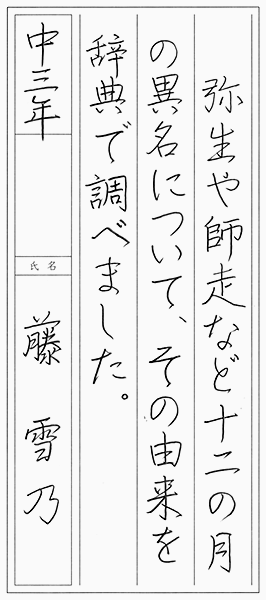 弥生や師走など十二の月
の異名について、その由来を
辞典で調べました。
中三年
氏名
藤 雪乃